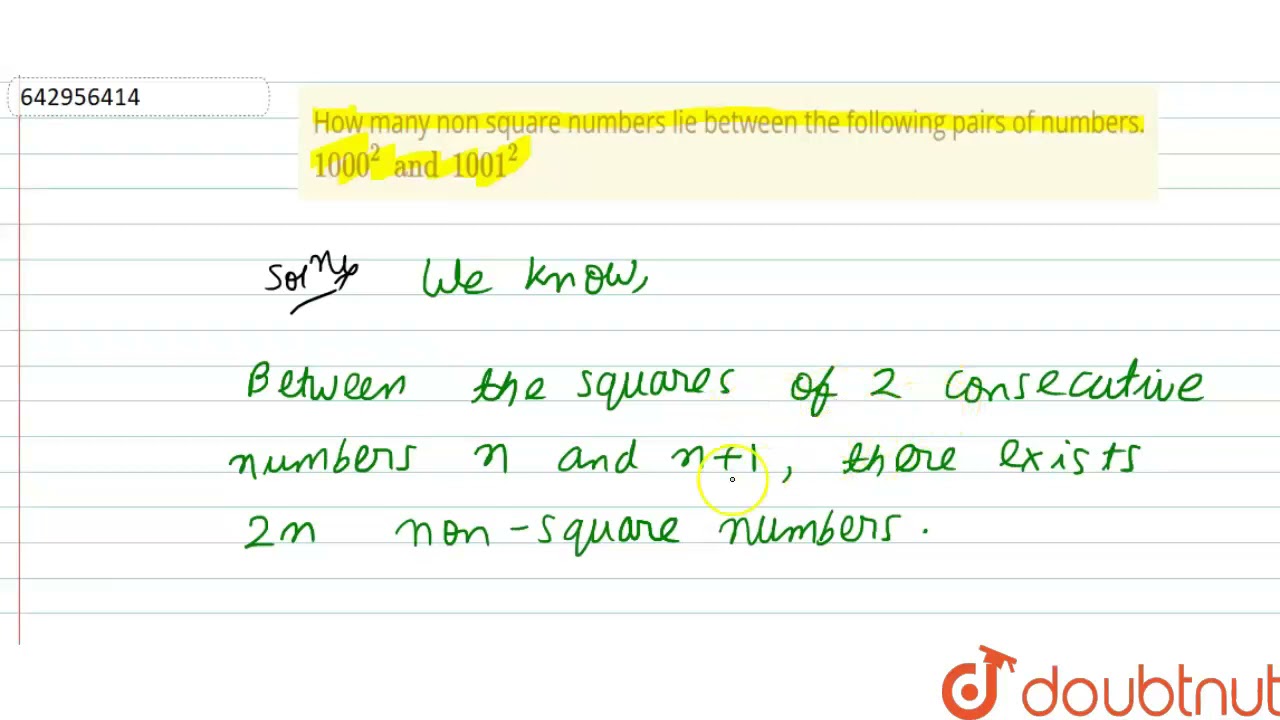 642956414
How many non square numbers lie between the following pairs of numbers.
1000² and 1001²
Solⁿ We know,
Between the squares of 2 consecutive
numbers n and n+1, there exists
2n non-square numbers.
doubtnut